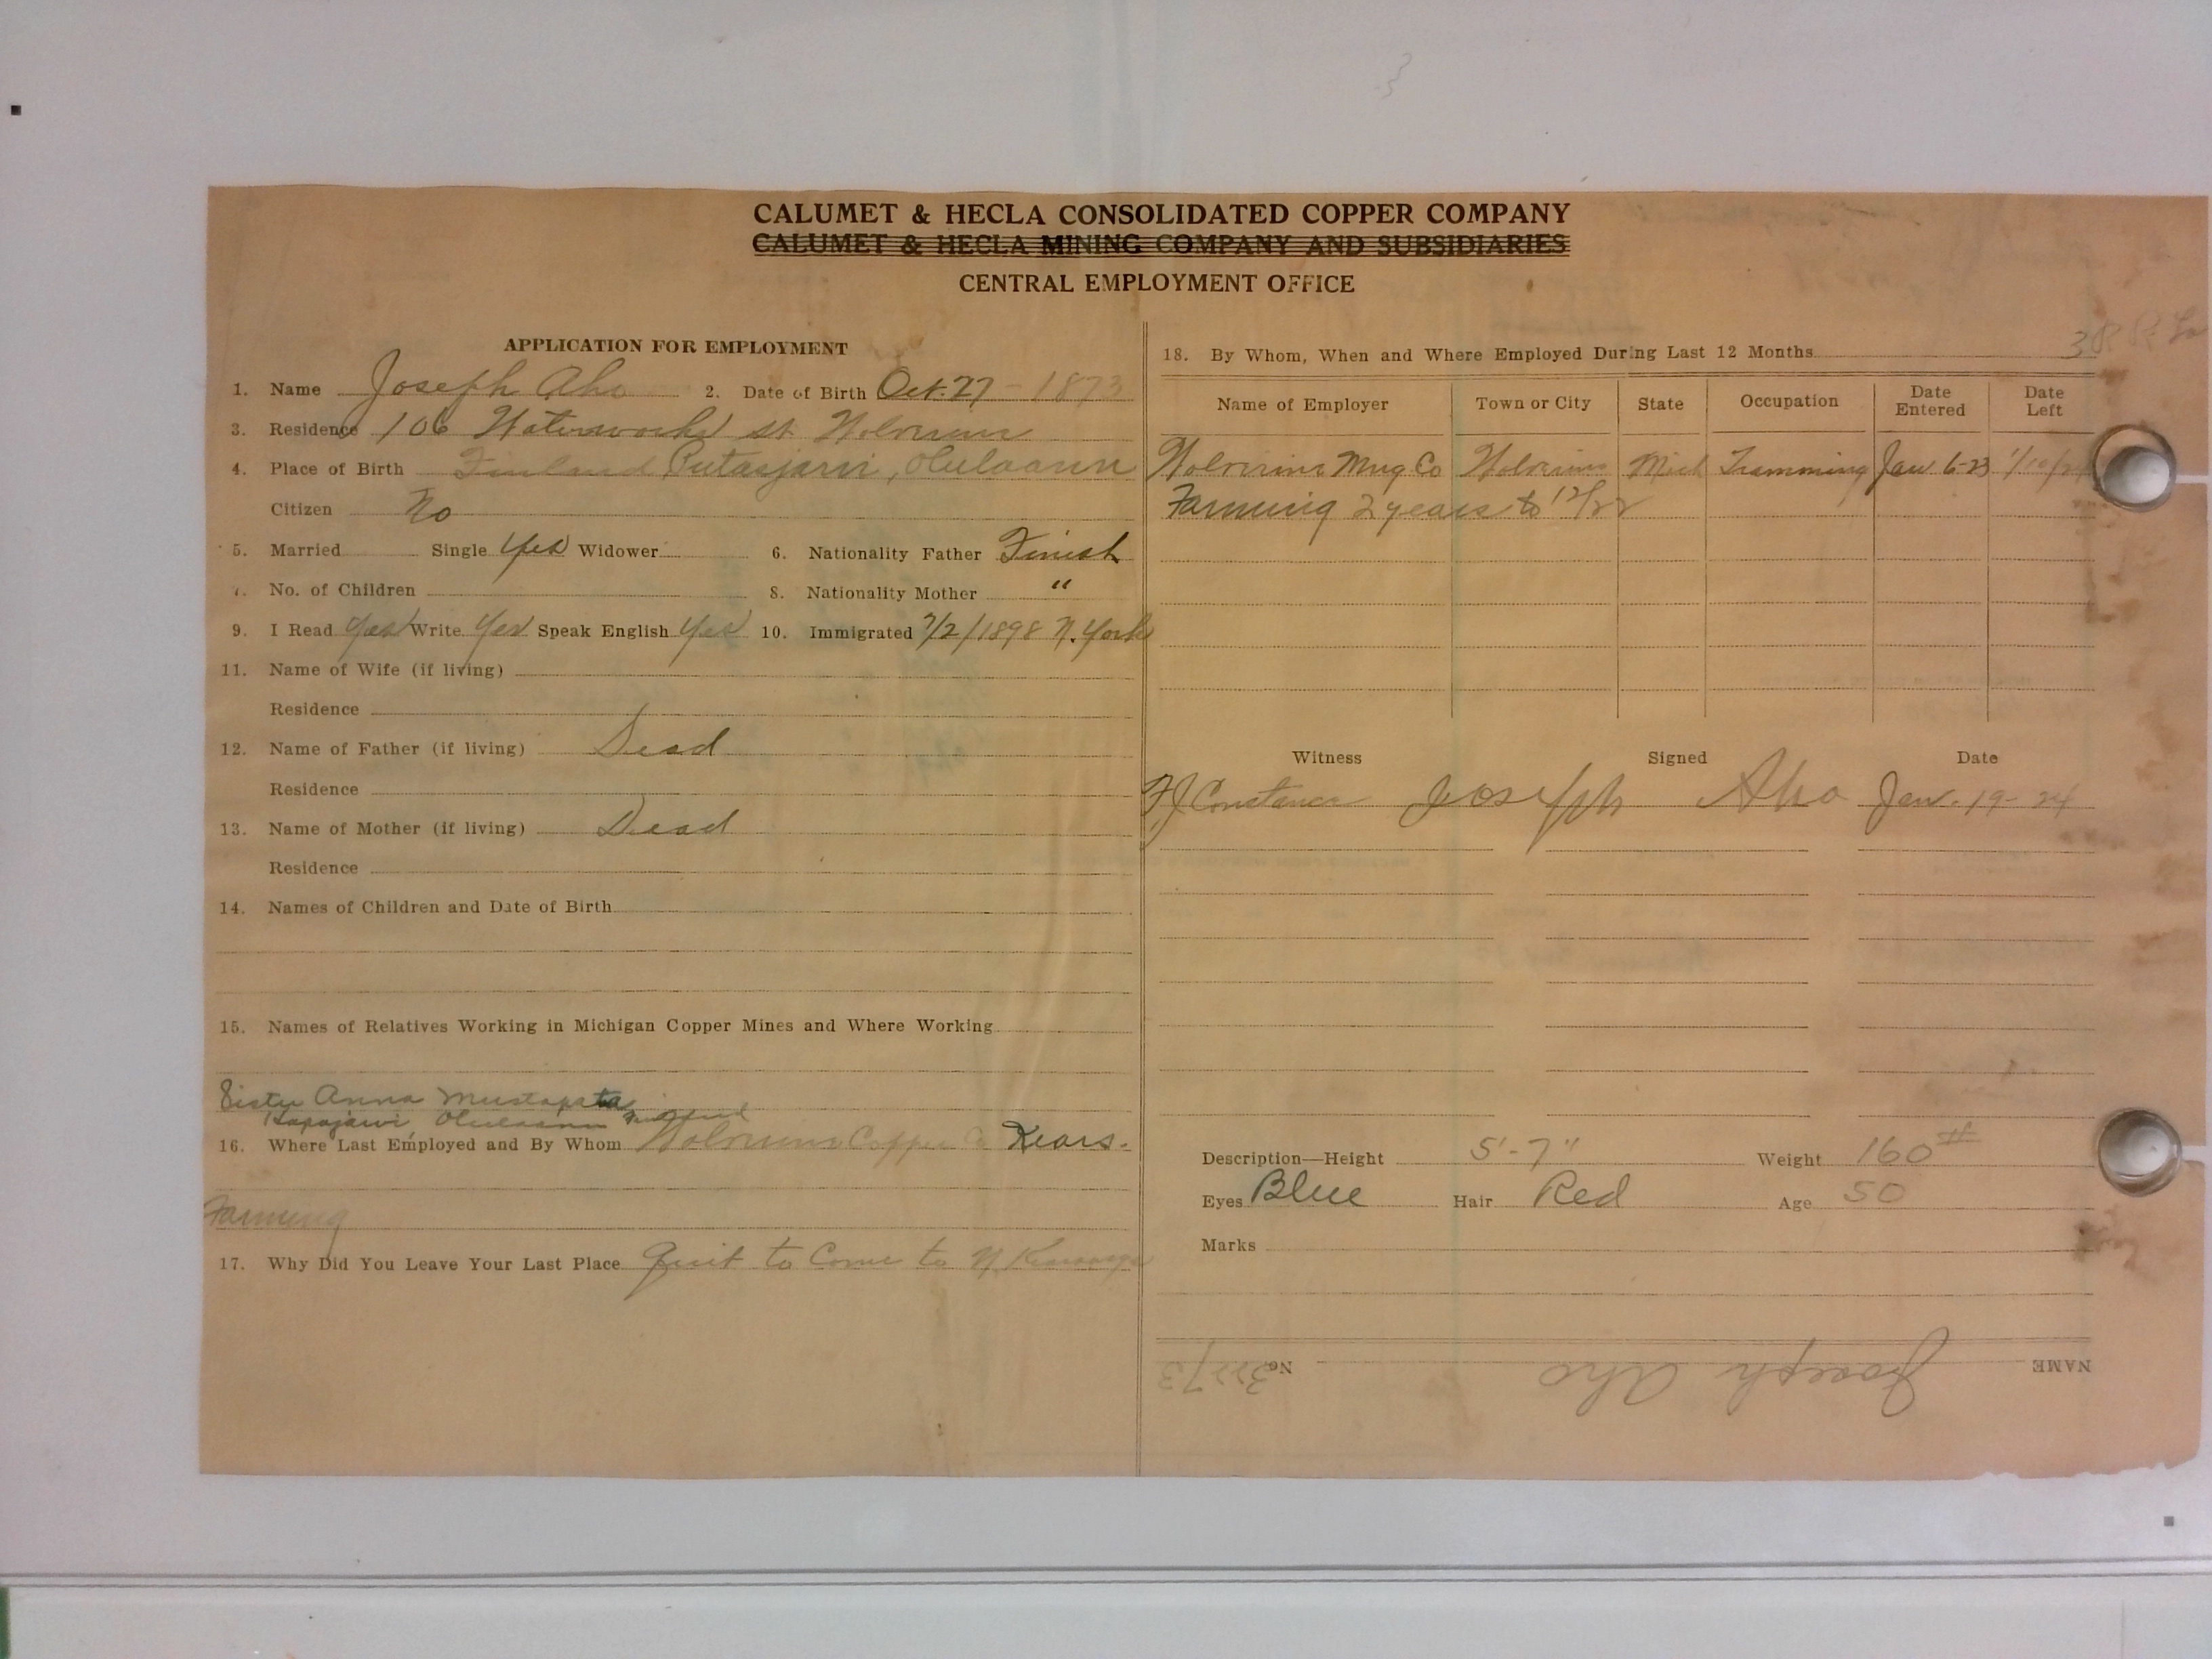 CALUMET & HECLA CONSOLIDATED COPPER COMPANY
CALUMET & HECLA MINING COMPANY AND SUBSIDIARIES
CENTRAL EMPLOYMENT OFFICE
APPLICATION FOR EMPLOYMENT
1. Name Joseph Aho 2. Date of Birth Oct. 27 - 1873
3. Residence 106 Waterworks St. Wolverine
4. Place of Birth Finland Putasjarvi, Oulu
Citizen No
5. Married Single Yes Widower 6. Nationality Father Finish
7. No. of Children 8. Nationality Mother "
9. I Read Yes Write Yes Speak English Yes 10. Immigrated 7/2/1898 N. York
11. Name of Wife (if living)
Residence
12. Name of Father (if living) Dead
Residence
13. Name of Mother (if living) Dead
Residence
14. Names of Children and Date of Birth
15. Names of Relatives Working in Michigan Copper Mines and Where Working
Sister Anna Mustapata
Finland
16. Where Last Employed and By Whom Wolverine Copper Co Kears.
Farming
17. Why Did You Leave Your Last Place Quit to Come to N. Kearsarge
18. By Whom, When and Where Employed During Last 12 Months
Name of Employer Town or City State Occupation Date Entered Date Left
Wolverine Mng Co Wolverine Mich Tramming Jan 6-23 1/10/24
Farming 2 years to 12/22
Witness Signed Date
F J Constance Joseph Aho Jan. 19-24
Description—Height 5'-7" Weight 160#
Eyes Blue Hair Red Age 50
Marks
NAME Joseph Aho No.